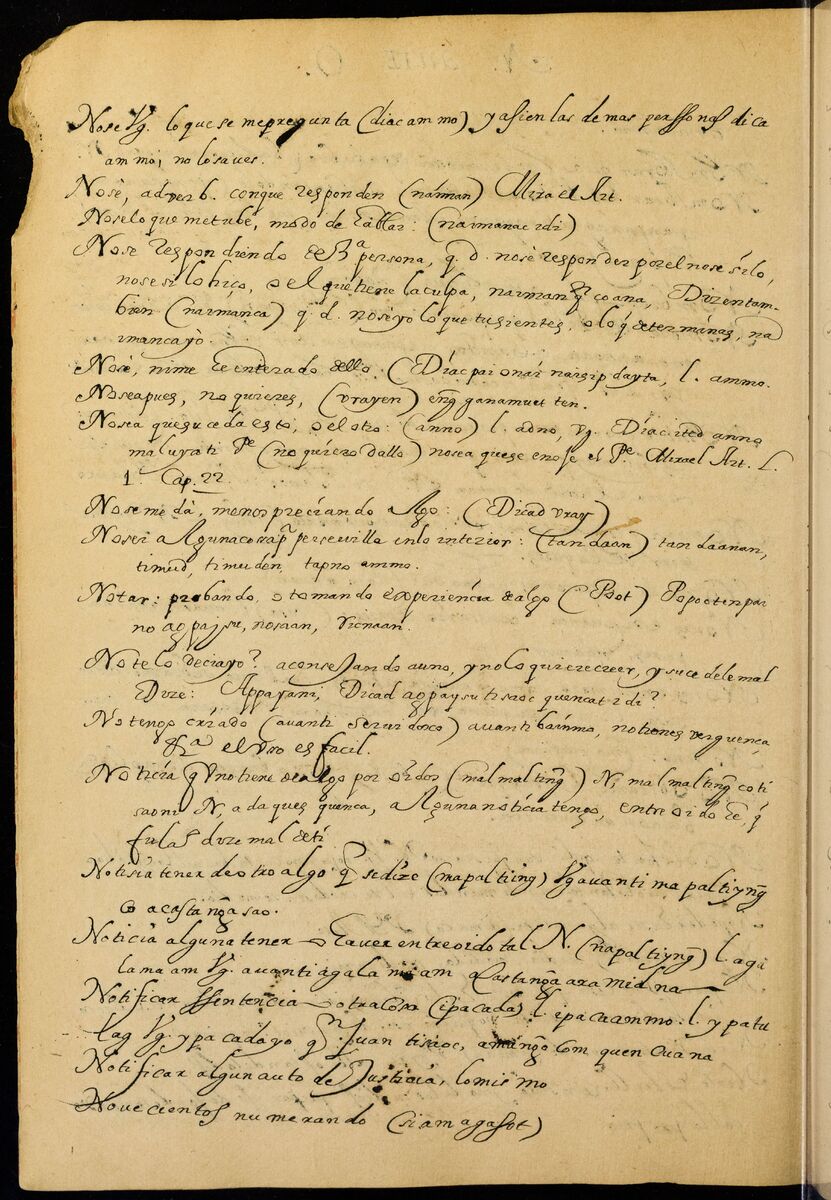 Nose Vg. lo que se me pregunta (diac ammo) y asi en las de mas perssonas dica
ammo, no lo saves.
Nosè, adverb. con que responden (naiman) Mira el Art.
Nose lo que me tube, modo de hablar: (naimanac idi)
Nose respondiendo de 3ª persona, q. d. nose responder por el nose si lo,
nose si lo hiço, o el que tiene la culpa, naiman coana, Dizen tam-
bien (naimanca) q. d. nose yo lo que tu sientes, o lo q determinas, na
imancayo.
Nosè, ni me he enterado dello. (Diac pai onai nasip dayta, l. ammo.
No seapues, no quieres, (vrayen) eng ganamuet ten.
No sea que suceda esto, o el otro: (anno) l. adno, vg. Diac ited anno
maluya ti Pe (no quiero dallo) no sea que se enoje el Pe. Mira el Art. L.
1 Cap. 22.
No se me dà, menospreciando Algo: (Dicad vray)
No sei Alguna cosa pª persevilla en lo interior: (tandaan) tandaanan,
timud, timuden, tapno ammo.
Notar: probando, o tomando experiencia de algo (Poot) Popooten pai
no agpaysu, nosaan, Vicnaan.
No te lo decia yo? aconsejando a uno, y no lo quiere creer, y sucedele mal
Dize: Appayani, Dicad agpaysu ti saoc quencat idi?
No tengo criado (avanti servidoco) avanti bainmo, no tienes verguença
el vso es facil.
Noticia q Vno tiene de algo por oidos (malmalting) N, malmalting co ti
sao ni N, a daques quenca, Alguna noticia tengo, entre oido he, q
fulaº dize mal de ti.
Notisia tener de otro algo q se dize (mapaltiing) Vg avanti mapaltiyng
co a castanga sao.
Noticia alguna tener o haver entre oido tal N. (napaltiyng) l. aga
lamaam Vg. avanti agalamam Castanga aramidna
Notificar ssentencia o otra Cosa (ipacada) l. ipacaammo. l. ypatu
lag Vg. ypacadayo Juan ti saoc, amangcom quencuana
Notificar algun auto de Justicia, lo mismo
Novecientos numerando (siamagasot)